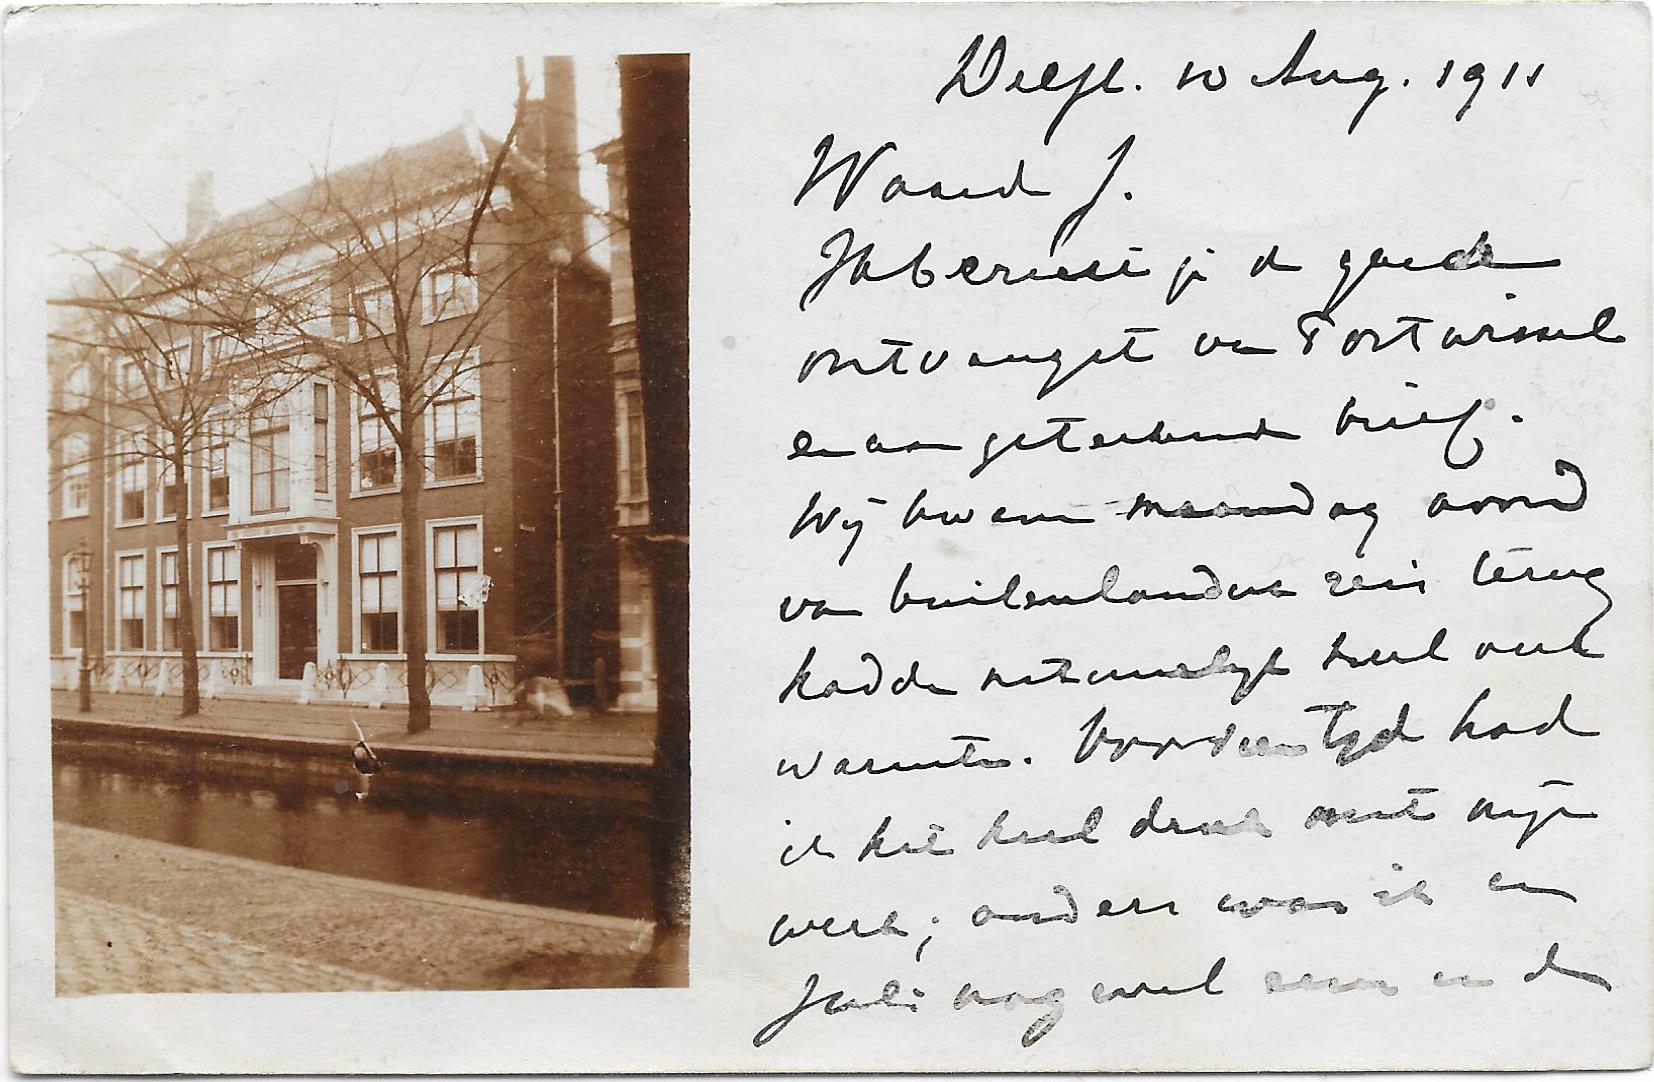 Delft. 10 Aug. 1911
Waarde J.
Ik bericht je de goede
ontvangst van Postwissel
en aangeteekende brief.
Wij kwamen maandag avond
van buitenlandsche reis terug
hadden natuurlijk heel veel
warmte. Voor dien tijd had
ik het heel druk met mijn
werk; anders was ik in
Juli nog wel eens in de